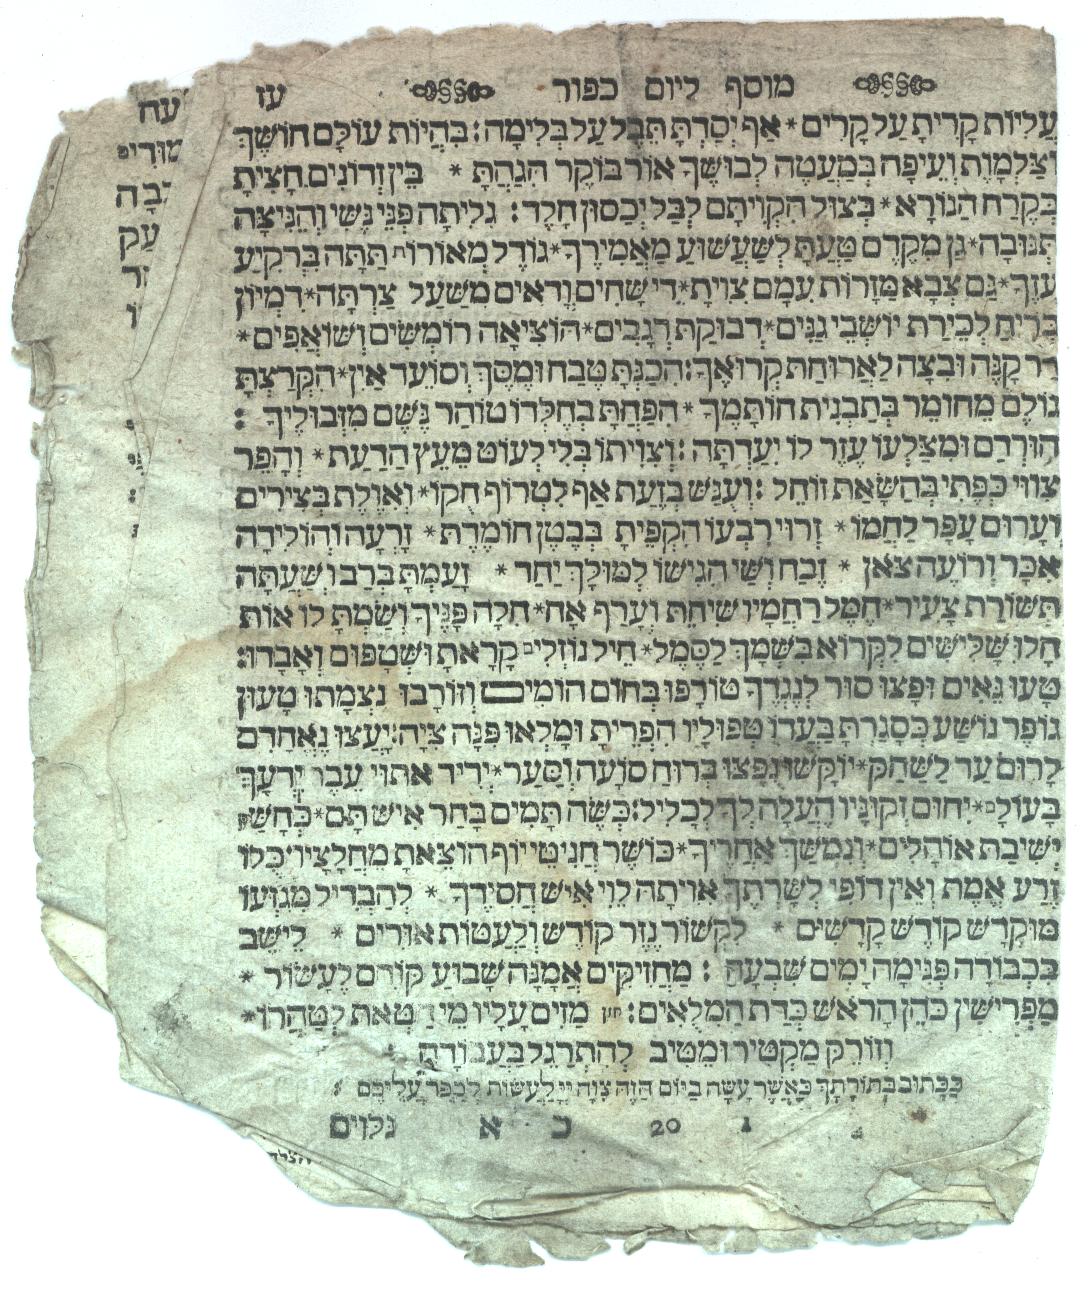 מוסף ליום כפור עז
עֲלִיּוֹת קָרִיתָ עַל קָרִים * אַף יָסַדְתָּ תֵּבֵל עַל בְּלִימָה : בִּהְיוֹת עוֹלָם חוֹשֶׁךְ
וְצַלְמָוֶת וְעֵיפָה בְּמַעֲטֶה לְבוּשֶׁךָ אוֹר בּוֹקֶר הִגַּהְתָּ * בֵּין זֵדוֹנִים חָצִיתָ
בְּקֶרַח הַנּוֹרָא * בְּצוּל הִקְוִיתָם לְבַל יְכַסּוּן חָלֶד : גִּלִּיתָה פְּנֵי נֶשִׁי וְהֵנִיצָה
תְּנוּבָה * גַּן מִקֶּדֶם טָעְתָּ לְשַׁעֲשׁוּעַ מַאֲמִירֶךָ * גּוֹדֶל מְאוֹרוֹת תַּתָּה בִּרְקִיעַ
עֻזֶּךָ * גַּם צְבָא מַזָּרוֹת עִמָּם צִוִּיתָ * דֵּי שָׂחִים וְדָאִים מִשַּׁעַל צַרְתָּה * דִּמְיוֹן
בָּרִיחַ לְכֵירַת יוֹשְׁבֵי גַנִּים * דְּבוּקַת רְגָבִים * הוֹצִיאָה רוֹמְשִׂים וְשׁוֹאֲפִים *
דַּר קָנֶה וּבִצָּה לַאֲרוּחַת קְרוּאֶךָ : הֵכַנְתָּ טֶבַח וּמֶסֶךְ וְסוֹעֵד אַיִן * הִקְרַצְתָּ
גּוֹלֶם מֵחוֹמֶר בְּתַבְנִית חוֹתָמֶךָ * הִפַּחְתָּ בְחֶלְדּוֹ טוֹהַר נֶשֶׁם מִזְּבוּלֶיךָ :
הוּרְדַם וּמִצַּלְעוֹ עֵזֶר לוֹ יִעַדְתָּה : וְצִוִּיתוֹ בְּלִי לְעוֹט מֵעֵץ הַדַּעַת * וְהֵפֵר
צִוּוּי כְּפֶתִי בְּהַשָּׁאַת זוֹחֵל : וְעֻנַּשׁ בְּזֵעַת אַף לִטְרוֹף חֻקּוֹ * וְאִוֶּלֶת בְּצִירִים
וְעָרוּם עָפָר לַחְמוֹ * זְרוּי רִבְעוֹ הִקְפֵּיתָ בְּבֶטֶן חוֹמֶדֶת * זָרְעָה וְהוֹלִידָה
אִכָּר וְרוֹעֵה צֹאן * זֶבַח וְשַׁי הִגִּישׁוּ לְמוּלָךְ יַחַד * זָעַמְתָּ בְּרַב וְשָׁעְתָּה
תְּשׁוּרַת צָעִיר * חֶמֶל רַחֲמָיו שִׁיחֵת וְעָרַף אָח * חִלָּה פָּנֶיךָ וְשַׂמְתָּ לוֹ אוֹת
חָלוּ שָׁלִישִׁים לִקְרוֹא בְשִׁמְךָ לַסֶּמֶל * חֵיל נוֹזְלִים קָרָאתָ וּשְׁטָפוּם וְאָבָדוּ :
טָעוּ גֵאִים וּפָצוּ סוּר לְנֶגְדֶּךָ טוֹרְפוּ בְּחוֹם הוֹמִים וְזוֹרְבוּ נִצְמָתוּ טָעוּן
גּוֹפֶר נוֹשַׁע כְּסָגַרְתָּ בַעֲדוֹ טְפוּלָיו הִפְרֵיתָ וּמָלְאוּ פְנֵּה צִיָּה : יָעֲצוּ נֶאֱחָדִם
לָרוּם עַד לַשַּׁחַק * יוֹקָשׁוּ נֻפָּצוּ בְּרוּחַ סוֹעָה וְסַּעַר * יָדִיד אִתּוּי עֵבֶר יִדָּעֲךָ
בְּעוֹלָם * יִחוּם זְקוּנָיו הֶעֱלָה לְךָ לְכָלִיל : כְּשֶׂה תָּמִים בָּחַר אִישׁ תָּם * כְּחָשַׁק
יְשִׁיבַת אוֹהָלִים * וְנִמְשַׁךְ אַחֲרֶיךָ * כּוֹשֶׁר חֲנִיטֵי יוֹף הוֹצֵאתָ מֵחֲלָצָיו * כֻּלּוֹ
זֶרַע אֱמֶת וְאֵין דּוֹפִי לְשָׁרֶתְךָ אִוִּיתָה לֵוִי אִישׁ חֲסִידֶךָ * לְהַבְדִּיל מִגִּזְעוֹ
מוּקְדָּשׁ קוֹדֶשׁ קָדָשִׁים * לִקְשׁוֹר נֵזֶר קוֹדֶשׁ וְלַעֲטוֹת אוּרִים * לֵישֵׁב
בִּכְבוּדָּה פְּנִימָה יָמִים שִׁבְעָה : מַחֲזִיקִים אֲמָנָה שָׁבוּעַ קוֹדֶם לֶעָשׂוֹר *
מַפְרִישִׁין כֹּהֵן הָרֹאשׁ כְּדַת הַמִּלּוּאִים : חזן מַזִּים עָלָיו מֵי חַטָּאת לְטַהֲרוֹ *
וְזוֹרֵק מַקְטִיר וּמֵטִיב לְהִתְרַגֵּל בַּעֲבוֹדָה :
כַּכָּתוּב בְּתוֹרָתֶךָ כַּאֲשֶׁר עָשָׂה בַּיּוֹם הַזֶּה צִוָּה יְיָ לַעֲשׂוֹת לְכַפֵּר עֲלֵיכֶם :
20 כ א נלוים